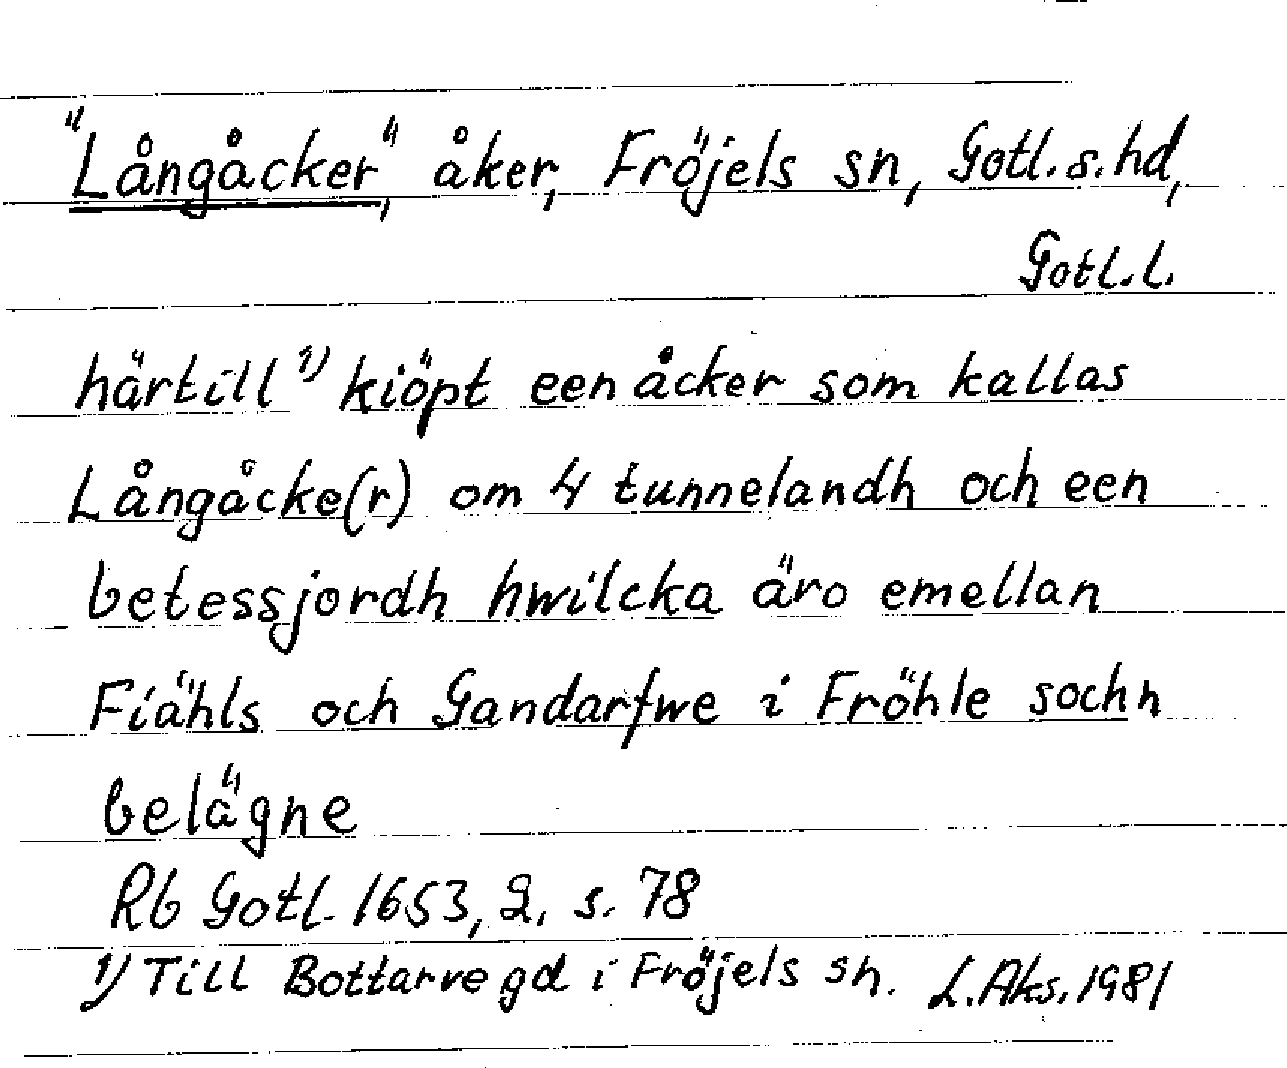 "Långåcker", åker, Fröjels sn, Gotl. s. hd,
Gotl. l.
härtill 1) kiöpt een åcker som kallas
Långåcke(r) om 4 tunnelandh och een
betessjordh hwilcka äro emellan
Fiähls och Gandarfwe i Fröhle sochn
belägne
Rb Gotl. 1653, 2, s. 78
1) Till Bottarve gd i Fröjels sn. L. Aks. 1981